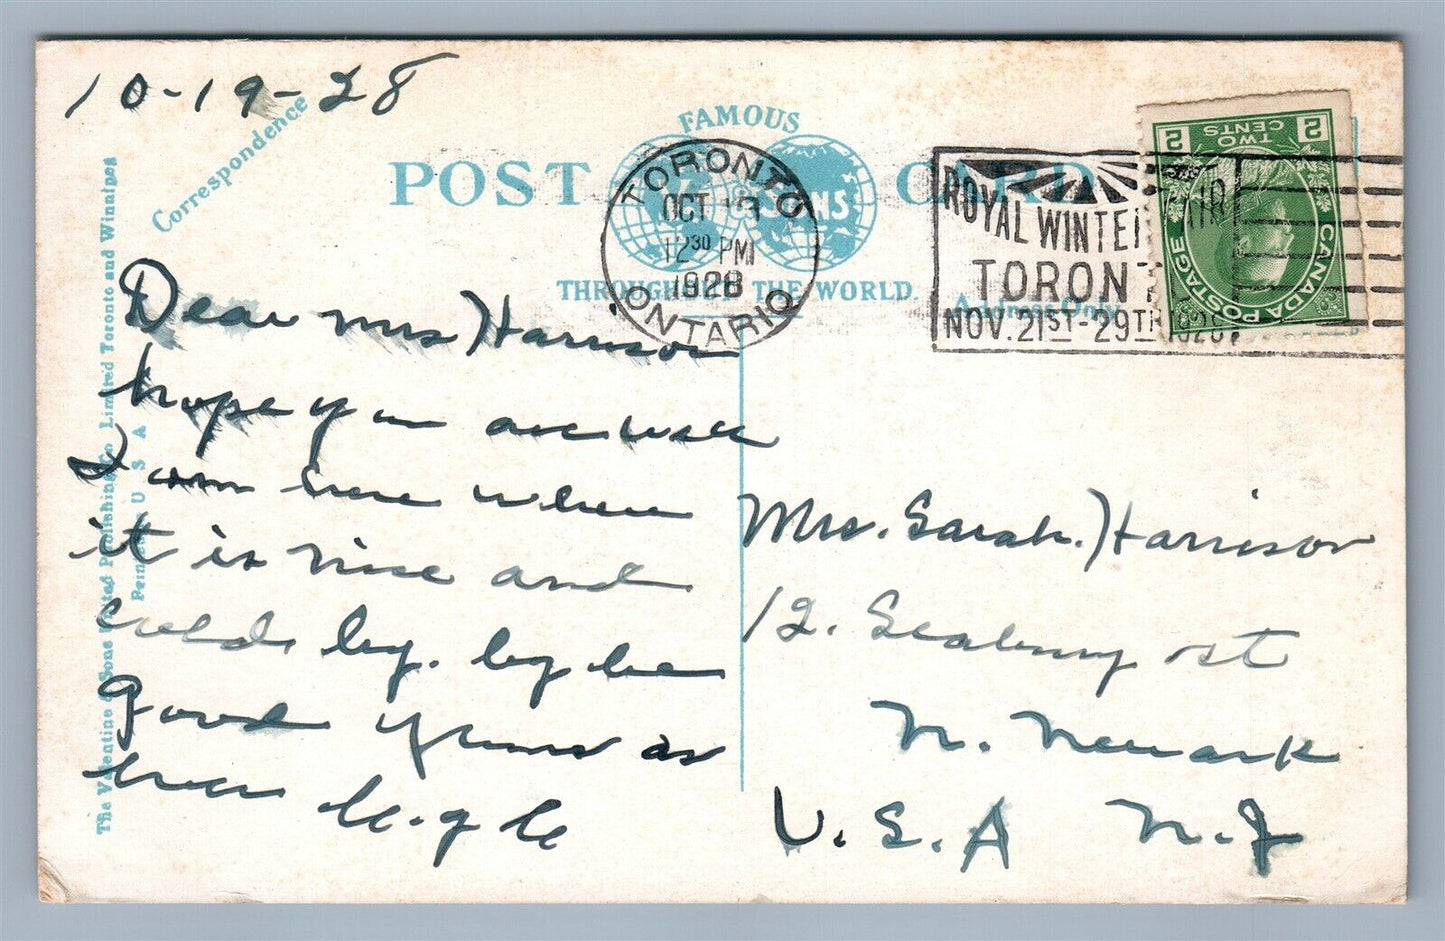 10-19-28
Correspondence
FAMOUS
POST CARD
& SONS
THROUGHOUT THE WORLD.
Address Only
TORONTO
OCT 19
12 30 PM
1928
ONTARIO
ROYAL WINTER FAIR
TORONTO
NOV. 21ST - 29TH 1928.
2 TWO CENTS 2
CANADA POSTAGE
The Valentine & Sons United Publishing Co Limited Toronto and Winnipeg
Printed U S A
Dear Mrs Harrison
hope you are well
I am here where
it is nice and
cold by. by be
good yours as
ever
Mrs. Sarah. Harrison
12. Seabury st
N. Newark
U.S.A N.J